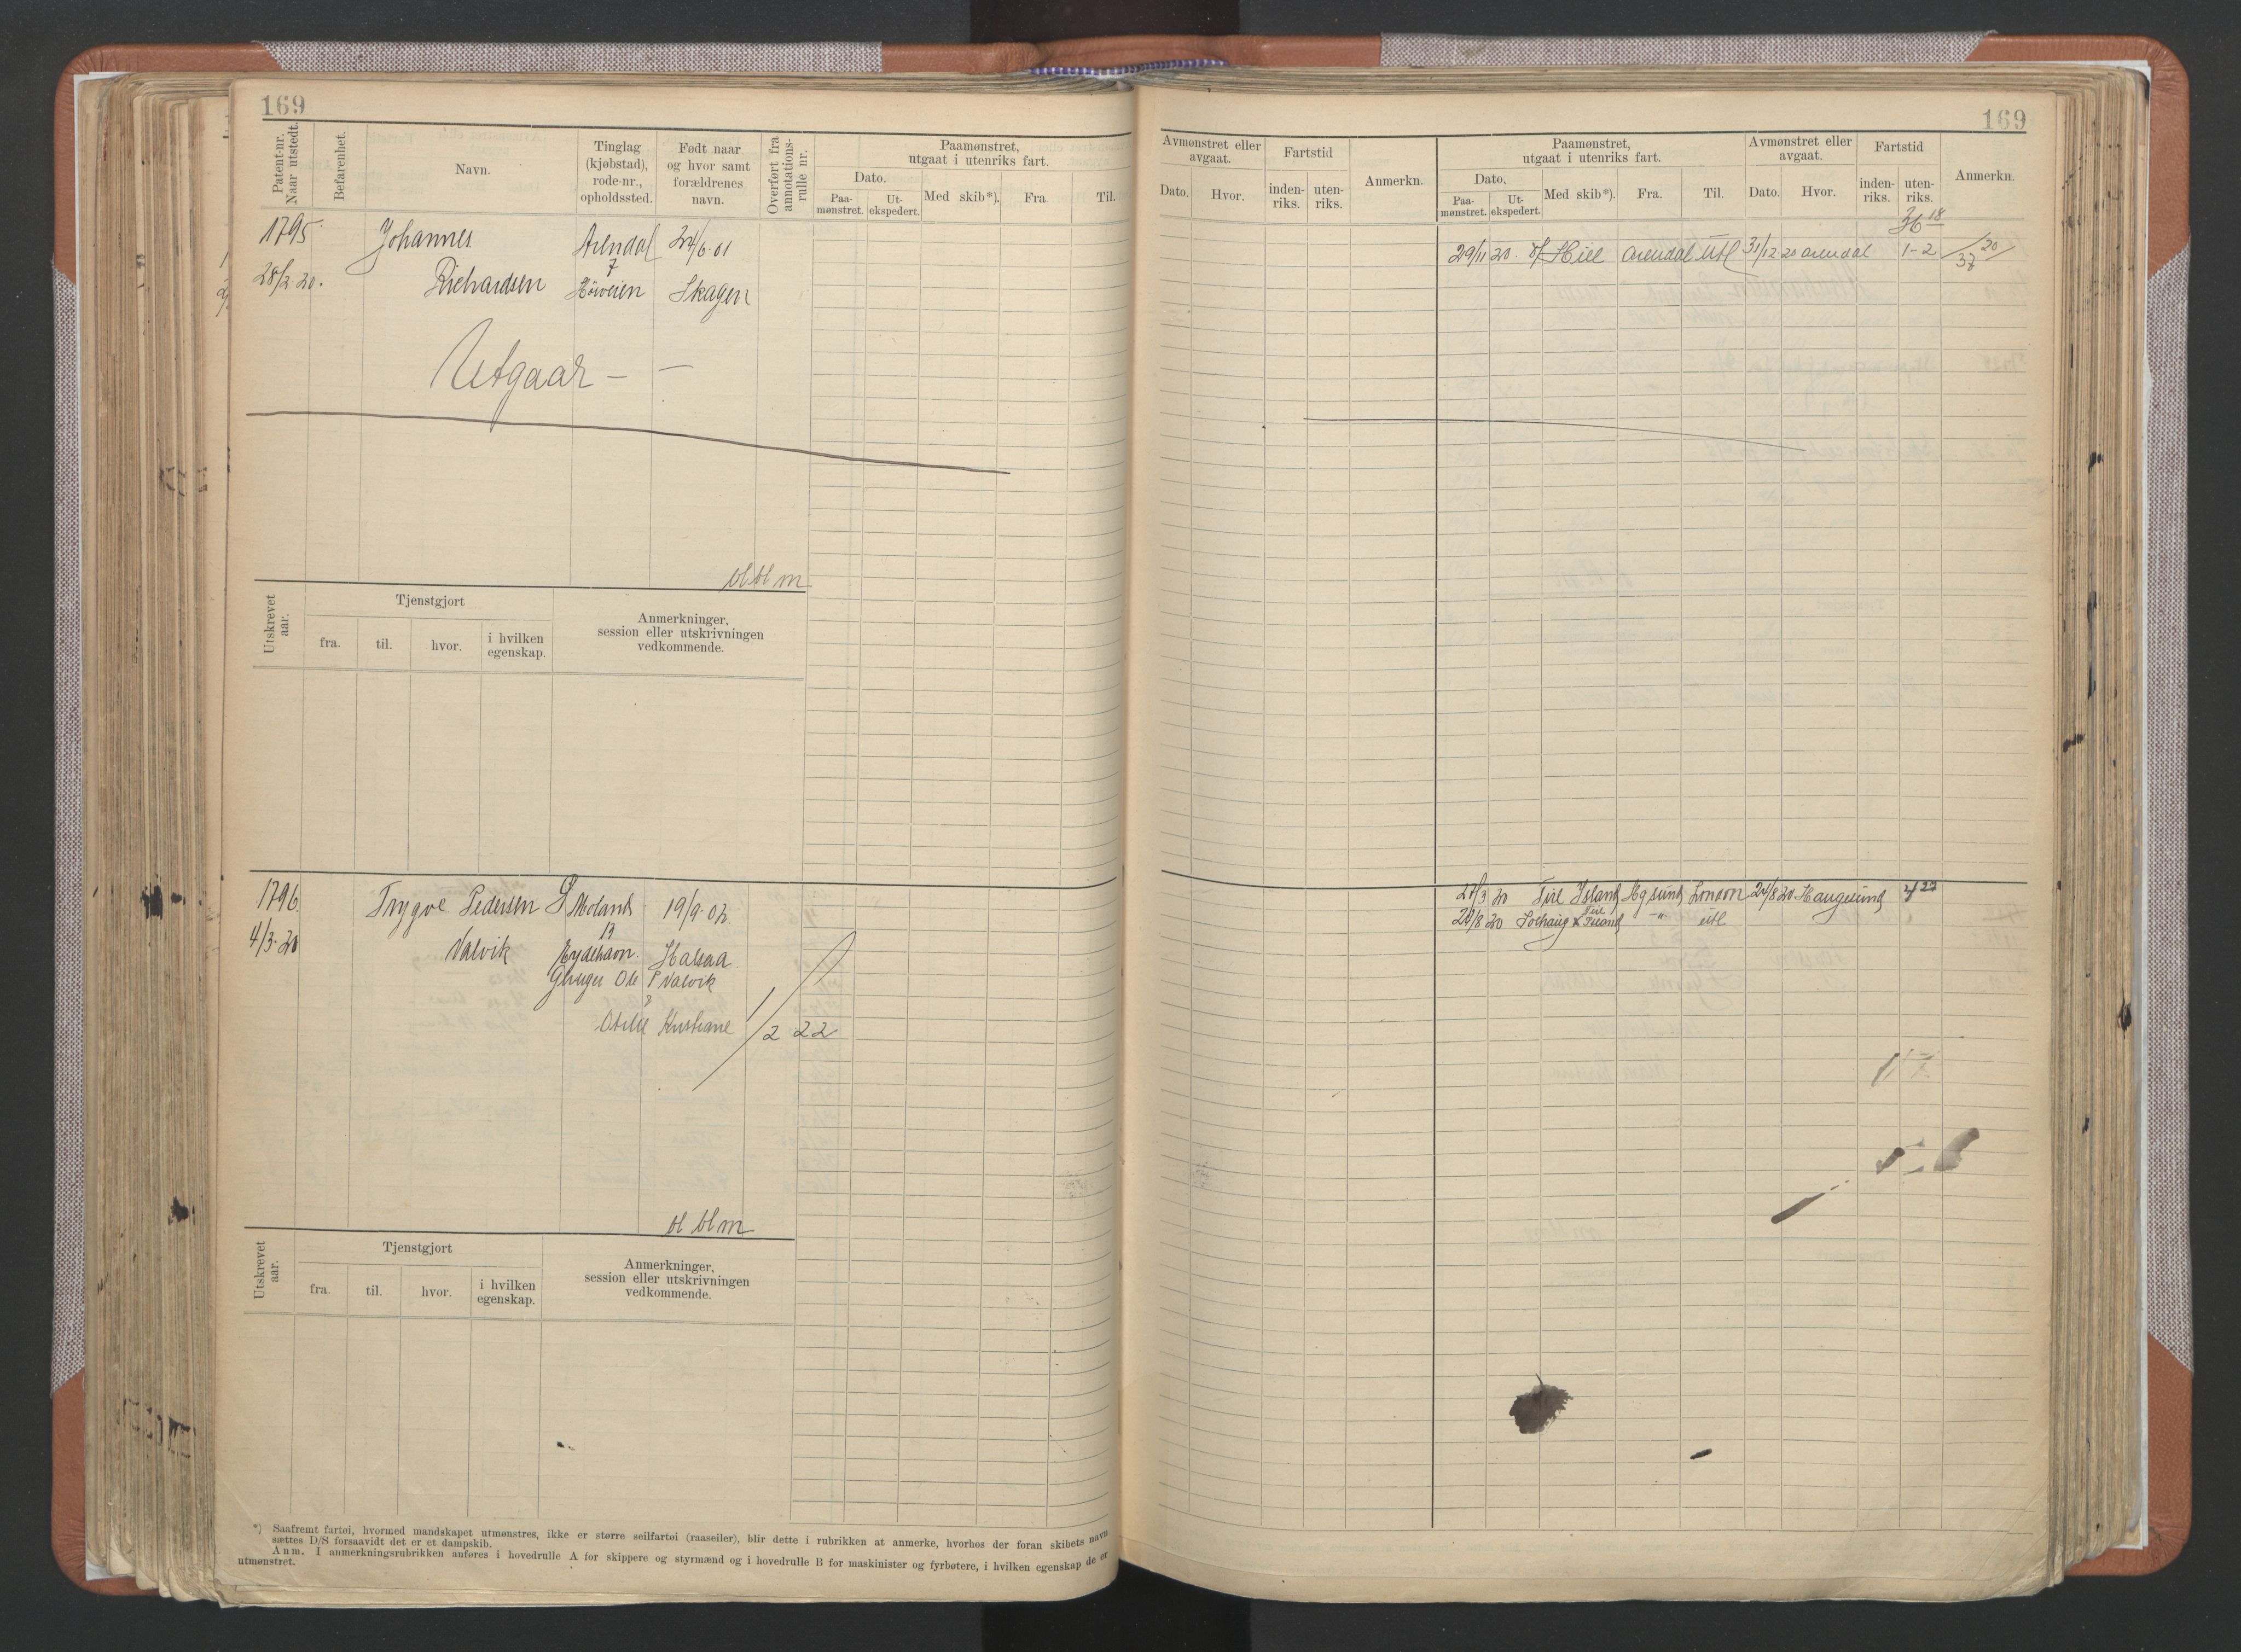 169
Patent-nr. Naar utstedt.
Befarenhet.
Navn.
Tinglag (kjøbstad), rode-nr., opholdssted.
Født naar og hvor samt forældrenes navn.
Overført fra annotations-rulle nr.
Paamønstret, utgaat i utenriks fart.
Dato.
Paa-mønstret.
Ut-ekspedert.
Med skib*).
Fra.
Til.
1795 Johannes Arendal 24/6-01
7
28/2 20. Richardsen Skagen
Utgaar - -
bl bl m
Utskrevet aar.
Tjenstgjort
fra.
til.
hvor.
i hvilken egenskap.
Anmerkninger, session eller utskrivningen vedkommende.
1796 Trygve Pedersen Moland 19/9-02
4/3-20 Valvik Eydehavn. Halsaa
Ole P Valvik
Kristiane
1/2 22
bl bl m
Utskrevet aar.
Tjenstgjort
fra.
til.
hvor.
i hvilken egenskap.
Anmerkninger, session eller utskrivningen vedkommende.
*) Saafremt fartøi, hvormed mandskapet utmønstres, ikke er større seilfartøi (raaseiler), blir dette i rubrikken at anmerke, hvorhos der foran skibets navn
sættes D/S forsaavidt det er et dampskib.
Anm. I anmerkningsrubrikken anføres i hovedrulle A for skippere og styrmænd og i hovedrulle B for maskinister og fyrbøtere, i hvilken egenskap de er
utmønstret.
169
Avmønstret eller avgaat.
Dato.
Hvor.
Fartstid
inden-riks.
uten-riks.
Anmerkn.
Paamønstret, utgaat i utenriks fart.
Dato.
Paa-mønstret.
Ut-ekspedert.
Med skib*).
Fra.
Til.
Avmønstret eller avgaat.
Dato.
Hvor.
Fartstid
inden-riks.
uten-riks.
Anmerkn.
36 18
29/11 20. Arendal Utl 31/12 20 Arendal 1-2 37 20
27/3 20 Island Hgsund London 24/8 20. Haugesund
20/8 20 Solhaug -"- utl